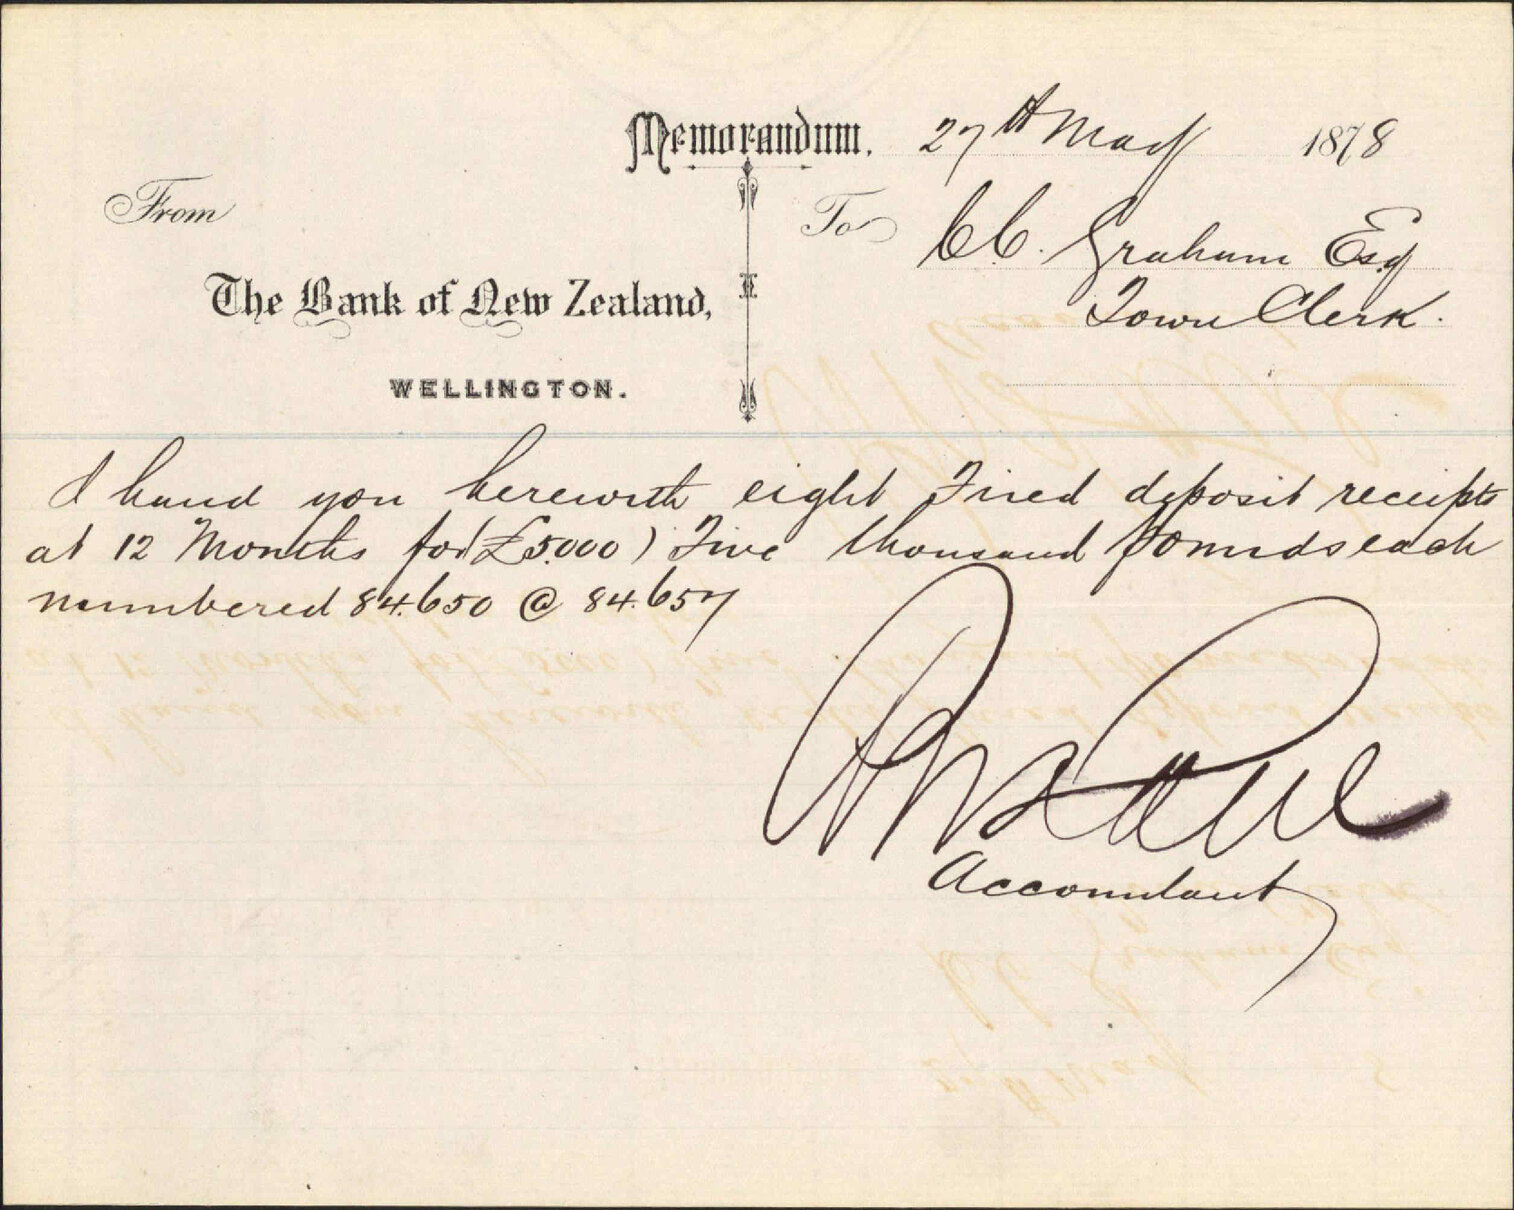 Memorandum. 27th May 1878
From
To C. C. Graham Esq
The Bank of New Zealand,
Town Clerk.
WELLINGTON.
I hand you herewith eight Fixed deposit receipts
at 12 Months for (£5000) Five thousand pounds each
numbered 84.650 @ 84.657
Accountant